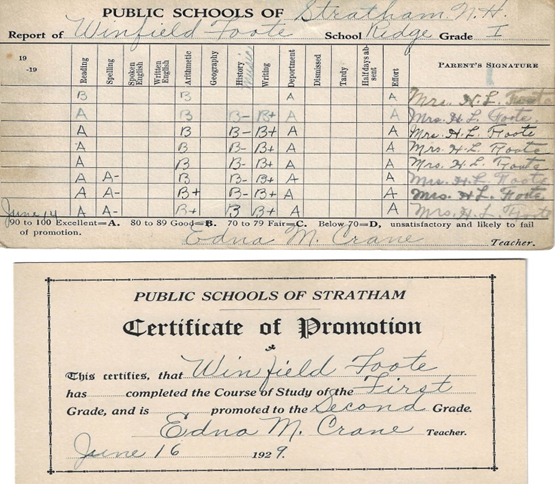 PUBLIC SCHOOLS OF Stratham N.H.
Report of Winfield Foote School Ridge Grade I
19 -19 Reading Spelling Spoken English Written English Arithmetic Geography History Writing Department Dismissed Tardy Half days absent Effort PARENT'S SIGNATURE
B B A A Mrs. H. L. Foote
A B B- B+ A A Mrs. H. L. Foote
A B B- B+ A A Mrs. H. L. Foote
A B B- B+ A A Mrs. H. L. Foote
A B B- B+ A A Mrs. H. L. Foote
A A- B B- B+ A A Mrs. H. L. Foote
A A- B+ B- B+ A A Mrs. H. L. Foote
June 14 A A- B+ B B+ A A Mrs. H. L. Foote
90 to 100 Excellent=A. 80 to 89 Good=B. 70 to 79 Fair=C. Below 70=D, unsatisfactory and likely to fail
of promotion. Edna M. Crane Teacher.
PUBLIC SCHOOLS OF STRATHAM
Certificate of Promotion
This certifies, that Winfield Foote
has completed the Course of Study of the First
Grade, and is promoted to the Second Grade.
Edna M. Crane Teacher.
June 16 1929.